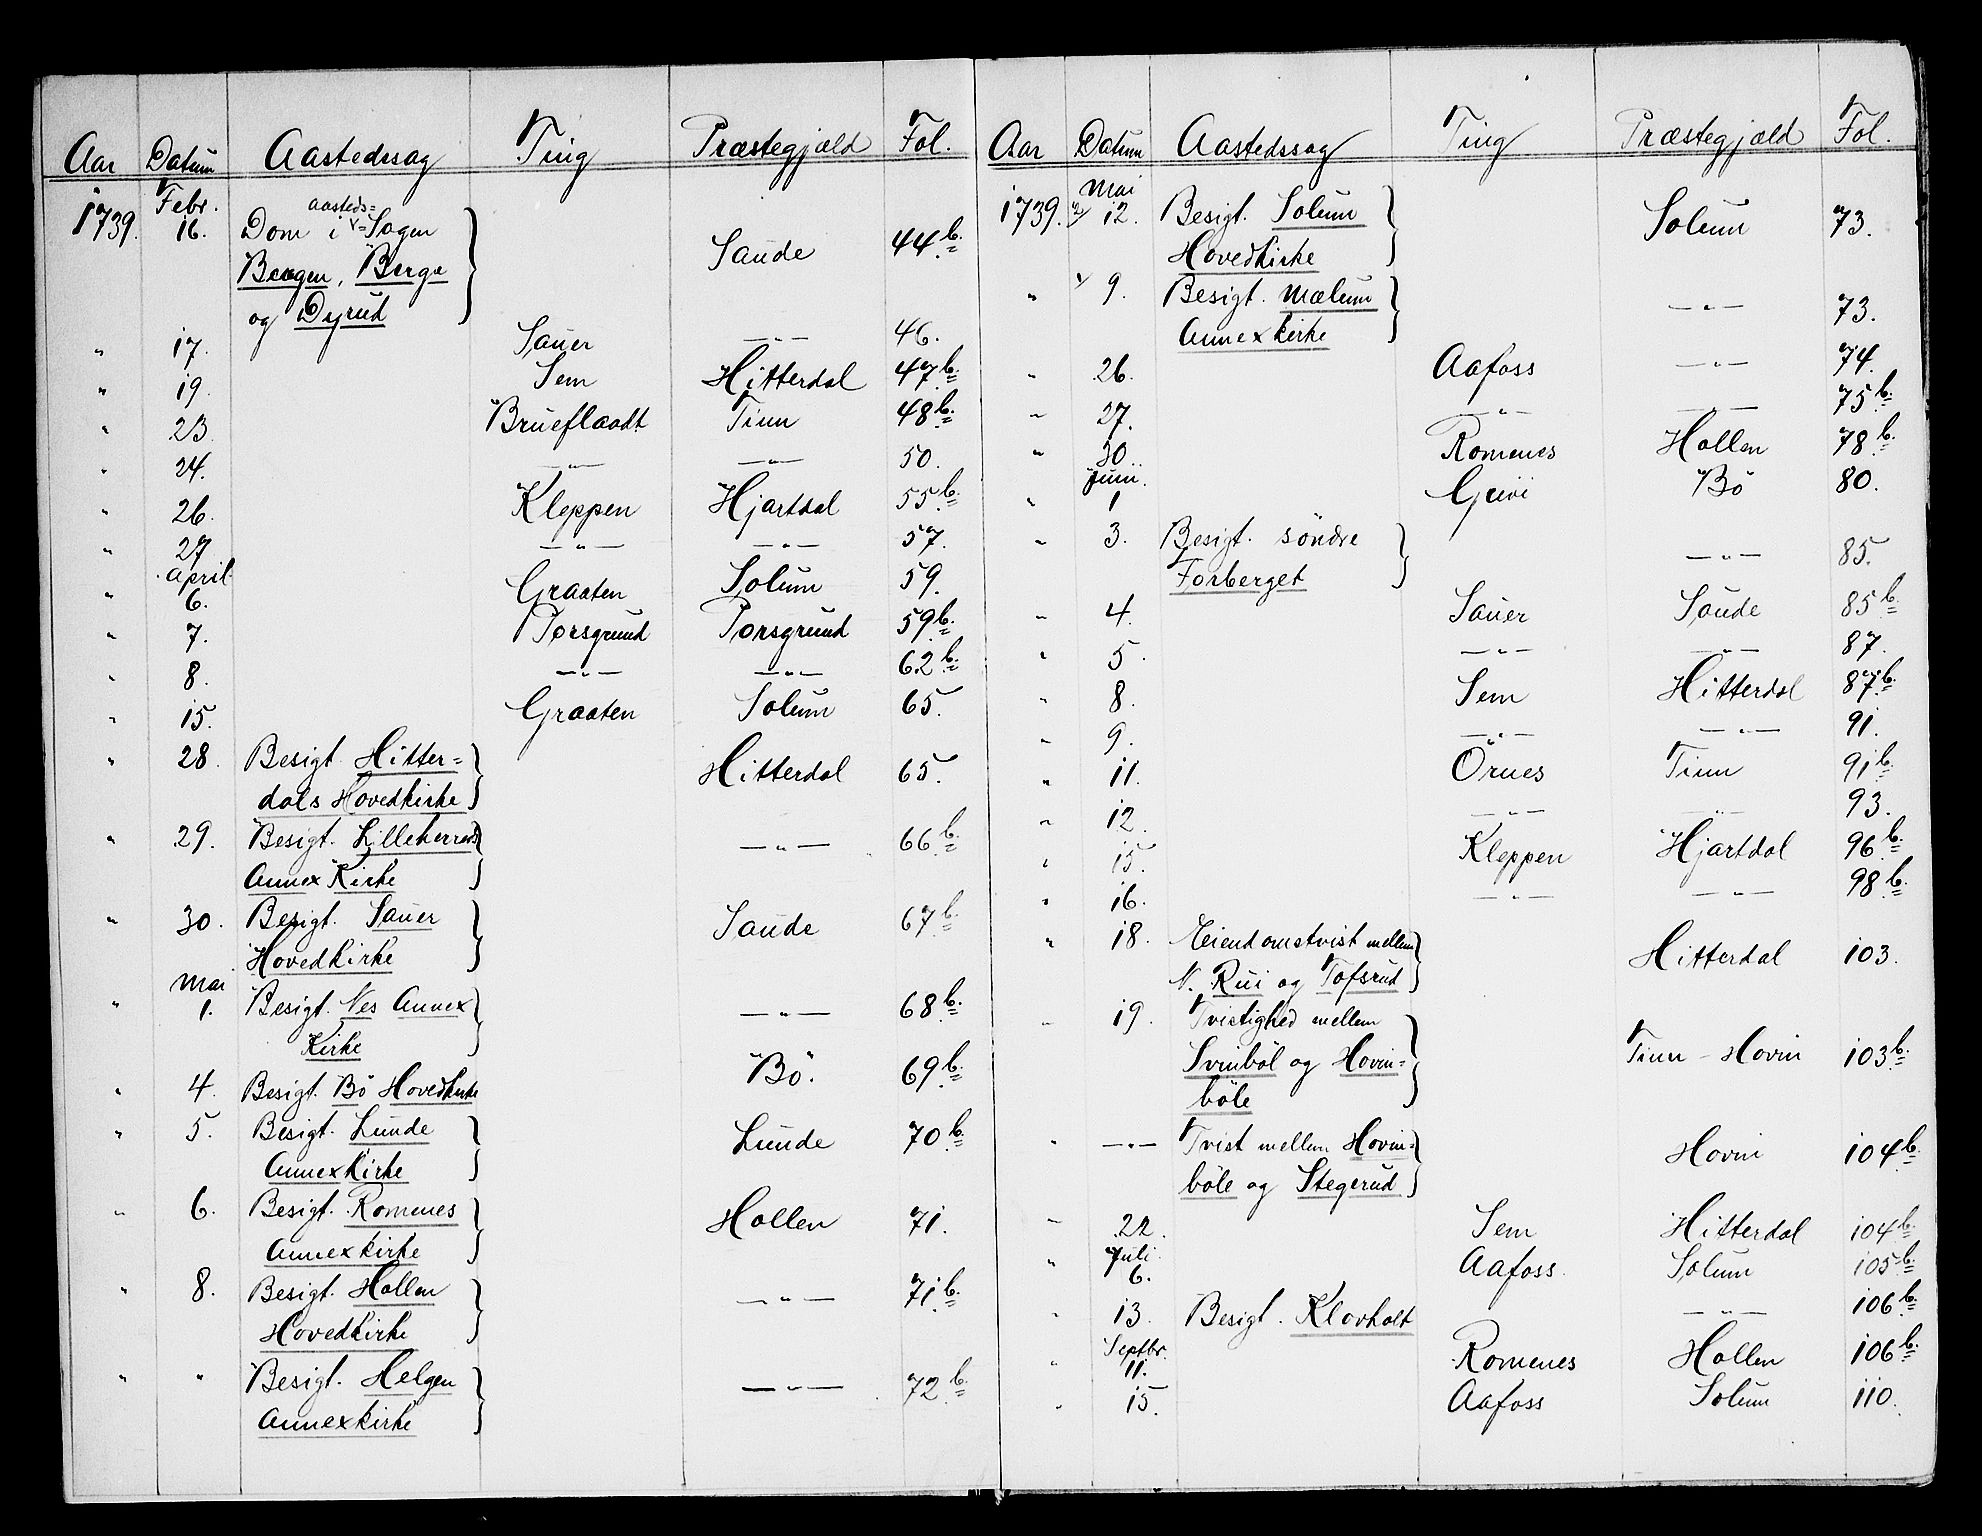 Aar Datum Aastedssag Ting Præstegjæld Fol.
1739. Febr. 16. Dom i aasteds= Sagen Saude 44 b.
Bergen, Berge
og Dyrud
" 17. Sauer —"— 46.
" 19. Sem Hitterdal 47 b.
" 23. Brueflaadt Tinn 48 b.
" 24. —"— —"— 50.
" 26. Kleppen Hjartdal 55 b.
" 27 —"— —"— 57.
" April 6. Graaten Solum 59.
" 7. Porsgrund Porsgrund 59 b.
" 8. —"— —"— 62 b.
" 15. Graaten Solum 65.
" 28. Besigt. Hitter= Hitterdal 65.
dals Hovedkirke
" 29. Besigt. Lilleherred —"— 66 b.
Annex Kirke
" 30. Besigt. Sauer Saude 67 b.
Hovedkirke
" Mai 1. Besigt. Nes Annex —"— 68 b.
Kirke
" 4. Besigt. Bö Hovedkirke Bö. 69 b.
" 5. Besigt. Lunde Lunde 70 b.
Annexkirke
" 6. Besigt. Romenes Hollen 71.
Annexkirke
" 8. Besigt. Hollen —"— 71 b.
Hovedkirke
" " Besigt. Helgen —"— 72 b.
Annexkirke
Aar Datum Aastedssag Ting Præstegjæld Fol.
1739. Mai 12. Besigt. Solum Solum 73.
Hovedkirke
" 9. Besigt. Mælum —"— 73.
Annexkirke
" 26. Aafoss —"— 74.
" 27. —"— —"— 75 b.
" 30. Romenes Hollen 78 b.
" Juni. 1 Grivi Bö 80.
" 3. Besigt. söndre —"— 85.
Forberget
" 4. Sauer Saude 85 b.
" 5. —"— —"— 87.
" 8. Sem Hitterdal 87 b.
" 9. —"— —"— 91.
" 11. Örnes Tinn 91 b.
" 12. —"— —"— 93.
" 15. Kleppen Hjartdal 96 b.
" 16. —"— —"— 98 b.
" 18. Eiendomstvist mellem Hitterdal 103.
N. Rui og Tofsrud
" 19. Tvistighed mellem Tinn - Hovin 103 b.
Svinböl og Hovin=
böle
" —"— Tvist mellem Hovin= Hovin 104 b.
böle og Stegerud
" 22. Sem Hitterdal 104 b.
" Juli 6. Aafoss. Solum 105 b.
" 13. Besigt. Klovholt —"— 106 b.
" Septbr. 11. Romenes Hollen 106 b.
" 15. Aafoss Solum 110.